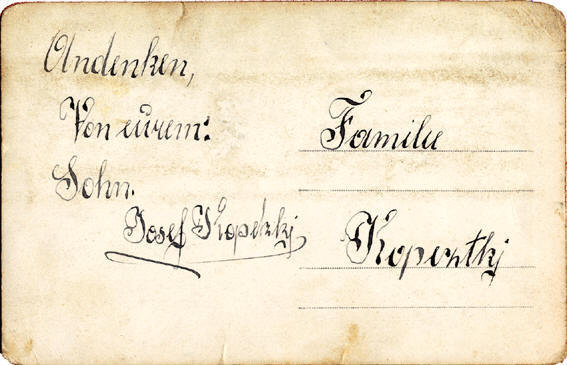 Andenken,
Von eurem:
Sohn.
Josef Kopetzkj
Familie
Kopeztkj